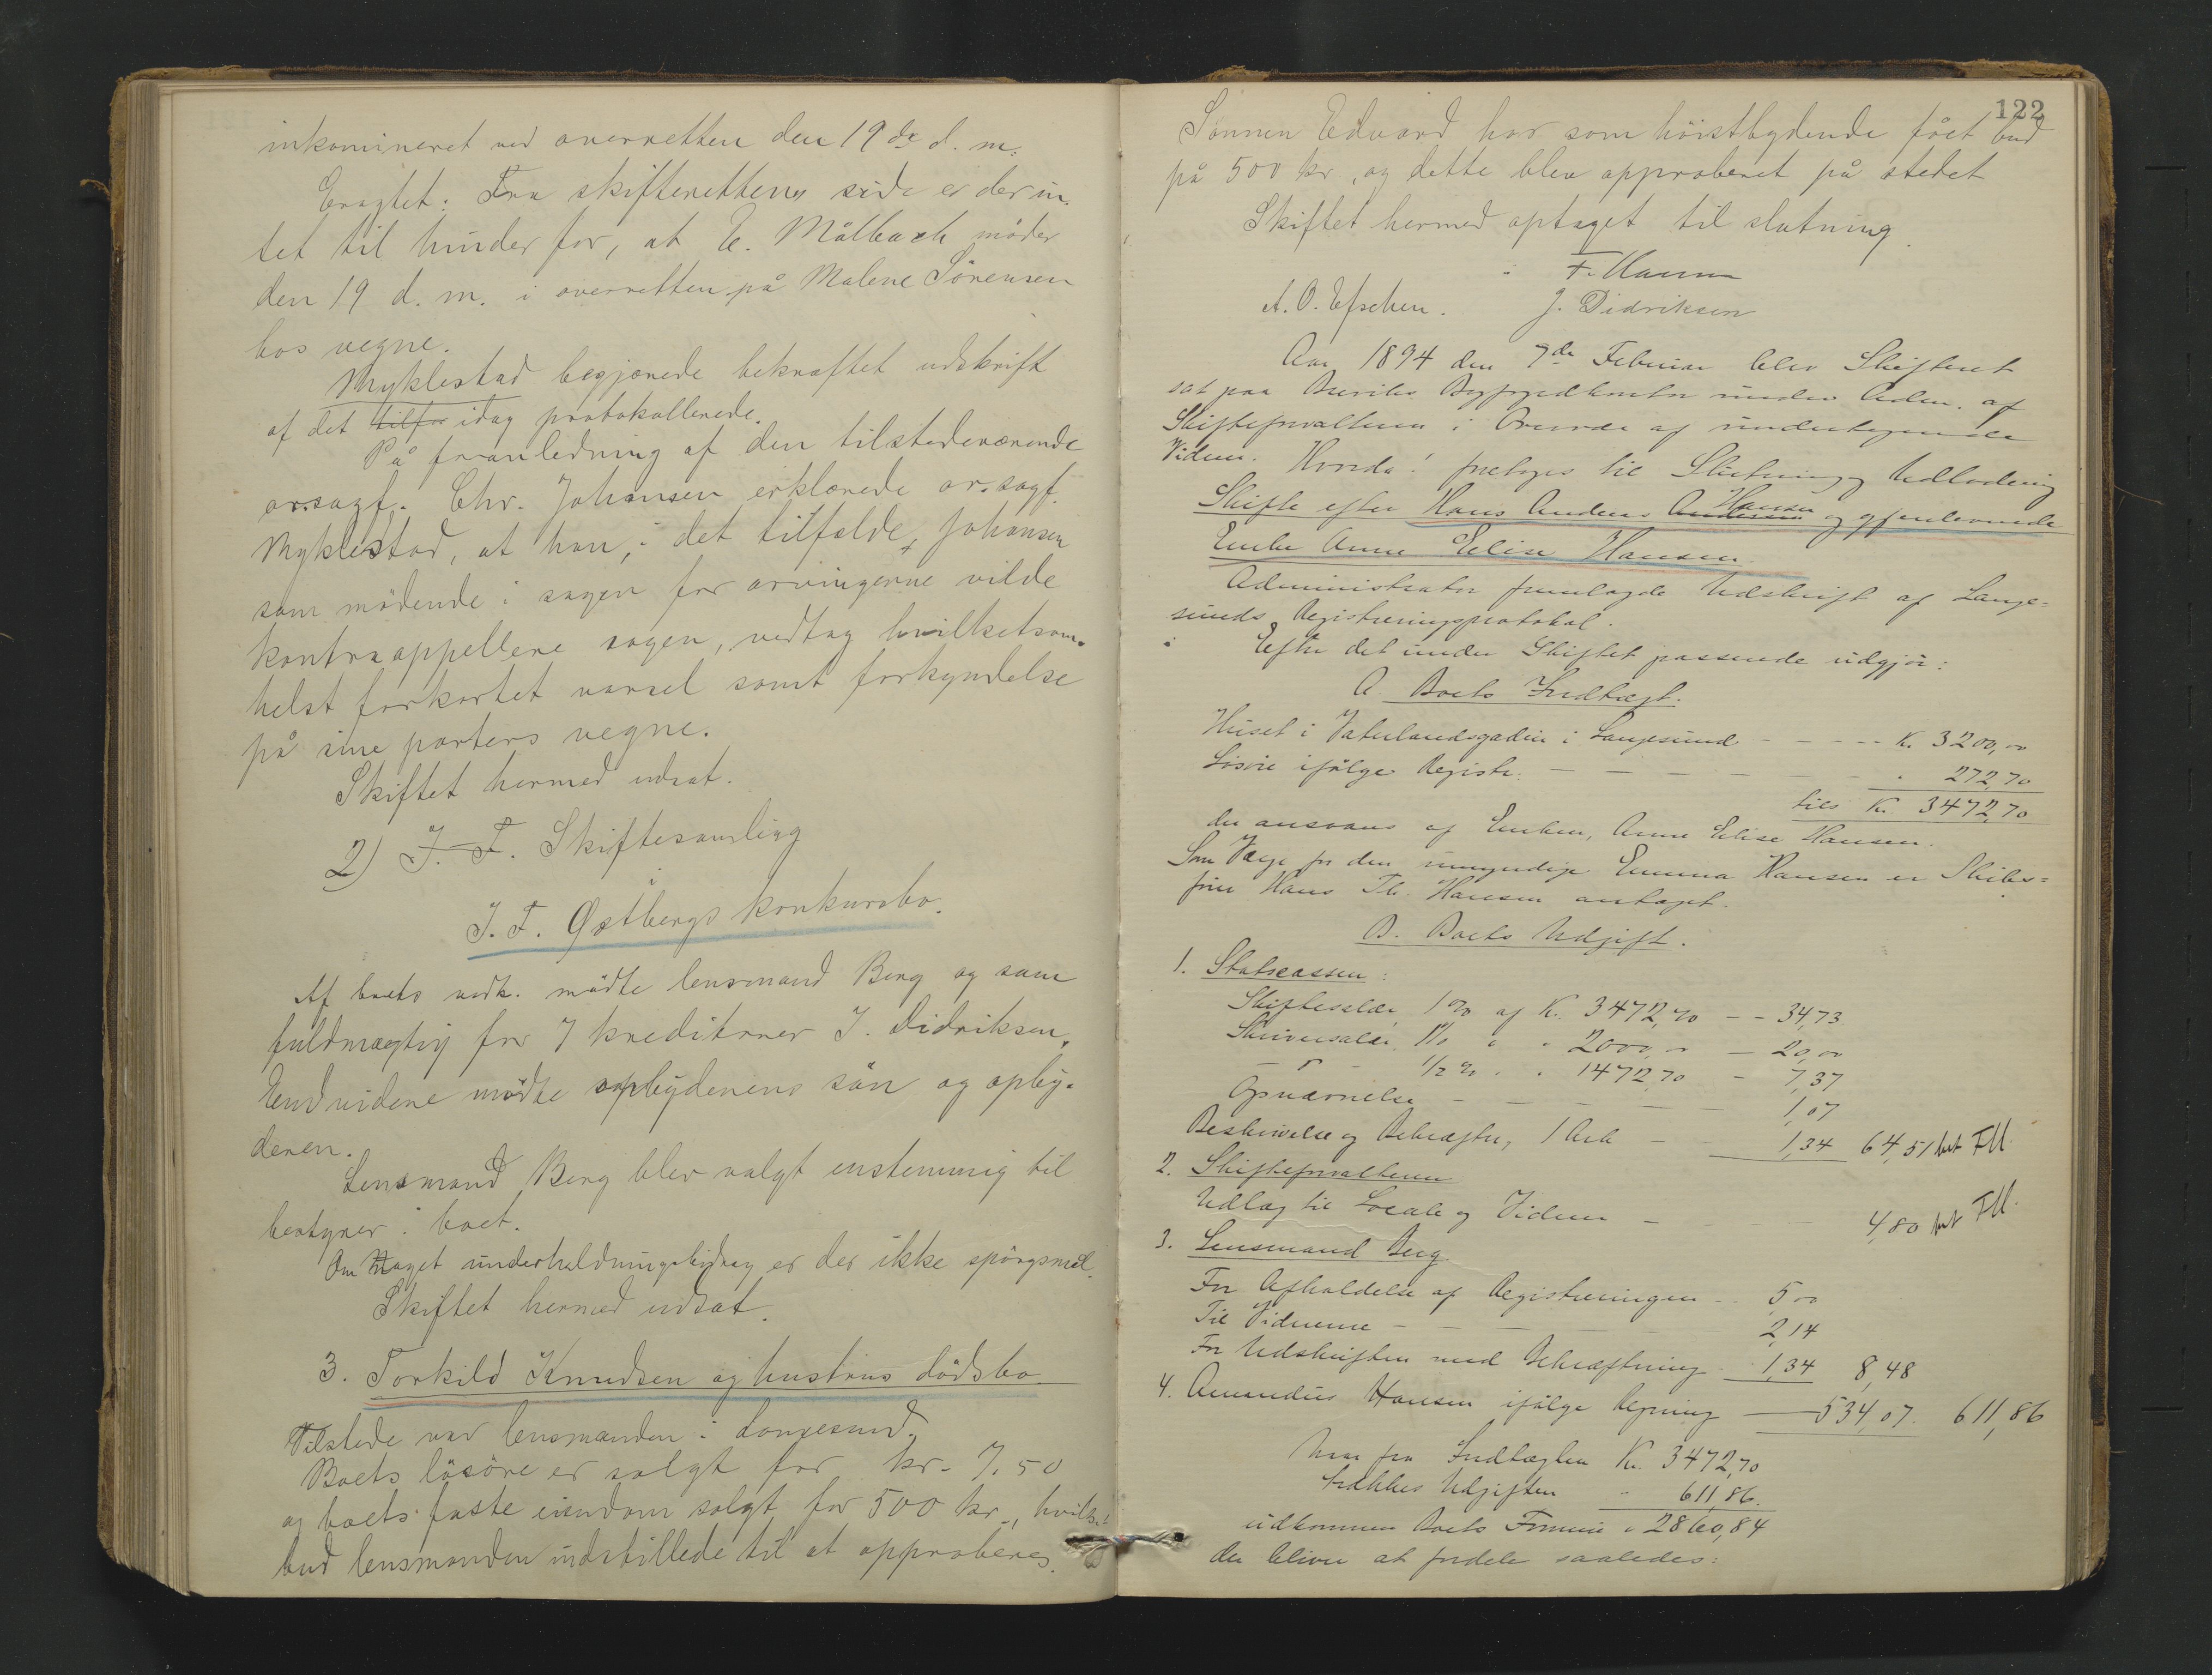 inkamineret ved overretten den 19de d. m.
Eragtet: Fra skifterettens side er der in-
tet til hinder for, at E. Mölbach möder
den 19 d. m. i overretten på Malene Sörensen
bos vegne.
Myklestad begjærede bekræftet udskrift
af det tilfør idag protokollerede.
På foranledning af den tilstedeværende
orsagf. Chr. Johansen erklærede or.sagf.
Myklestad, at han, i det tilfælde, Johansen
som mödende i sagen for arvingerne vilde
kontraappellere sagen, vedtog hvilketsom-
helst forkortet varsel samt forkyndelse
på sine parters vegne.
Skiftet hermed udsat.
2) J. F. Skiftesamling
J. F. Østbergs konkursbo.
Af boets vedk. mödte lensmand Berg og som
fuldmægtig for 7 kreditorer J. Didriksen,
Endvidere mödte opbyderens sön og opby-
deren.
Lensmand Berg blev valgt enstemmig til
bestyrer i boet.
Om Noget underholdningsbidrag er der ikke spörgsmål.
Skiftet hermed udsat.
3. Torkild Knudsen og hustrus dödsbo.
Tilstede var lensmanden i Langesund.
Boets lösöre er solgt for kr. 7.50
og boets faste eiendom solgt for 500 kr., hvilket
bud lensmanden indstillede til at approberes.
122
Sönnen Edvard har som höistbydende fået bud
på 500 kr., og dette blev approberet på stedet
Skiftet hermed optaget til slutning.
F. Maurer
A. O. Efschen. J. Didriksen
Aar 1894 den 7de Februar blev Skifteret
sat paa Breviks Byfogedkontor under Adm. af
Skifteforvalteren i Overvær af undertegnede
Vidner. Hvorda! foretoges til Slutning og Udlodning
Skifte efter Hans Anders Andersen Hansen og gjenlevende
Enke Anne Elise Hansen.
Administrator fremlagde Udskrift af Lange-
sunds Registreringsprotokol.
Efter det under Skiftet passerede udgjör:
A. Boets Indtægt.
Huset i Vaterlandsgaden i Langesund - - - - K. 3200,00
Lösöre ifölge Registr. - - - - - - " 272,70
tils K. 3472,70
der ansvares af Enken, Anne Elise Hansen.
Som Værge for den umyndige Emma Hansen er Skibs-
förer Hans Th. Hansen antaget.
B. Boets Udgift.
1. Statscassen:
Skiftesalær 1% af K. 3472,70 - - 34,73
Skriversalær 1% " " 2000,00 - 20,00
- " - 1/2 % " " 1472,70 - 7,37
Opnævnelse - - - - - 1,07
Beskrivelse og Bekræftn, 1 Ark - - 1,34 64,51 bet FM.
2. Skifteforvalteren
Udlæg til Locale og Vidner - - - 4,80 bet FM.
3. Lensmand Berg
For Afholdelse af Registreringen - 5,00
Til Vidnerne - - - - 2,14
For Udskriften med Bekræftning - 1,34 8,48
4. Amandus Hansen ifölge Regning - 534,07. 611,86
Naar fra Indtægten K. 3472,70
trækkes Udgiften " 611,86.
udkommer Boets Formue " 2860,84
der bliver at fordele saaledes: